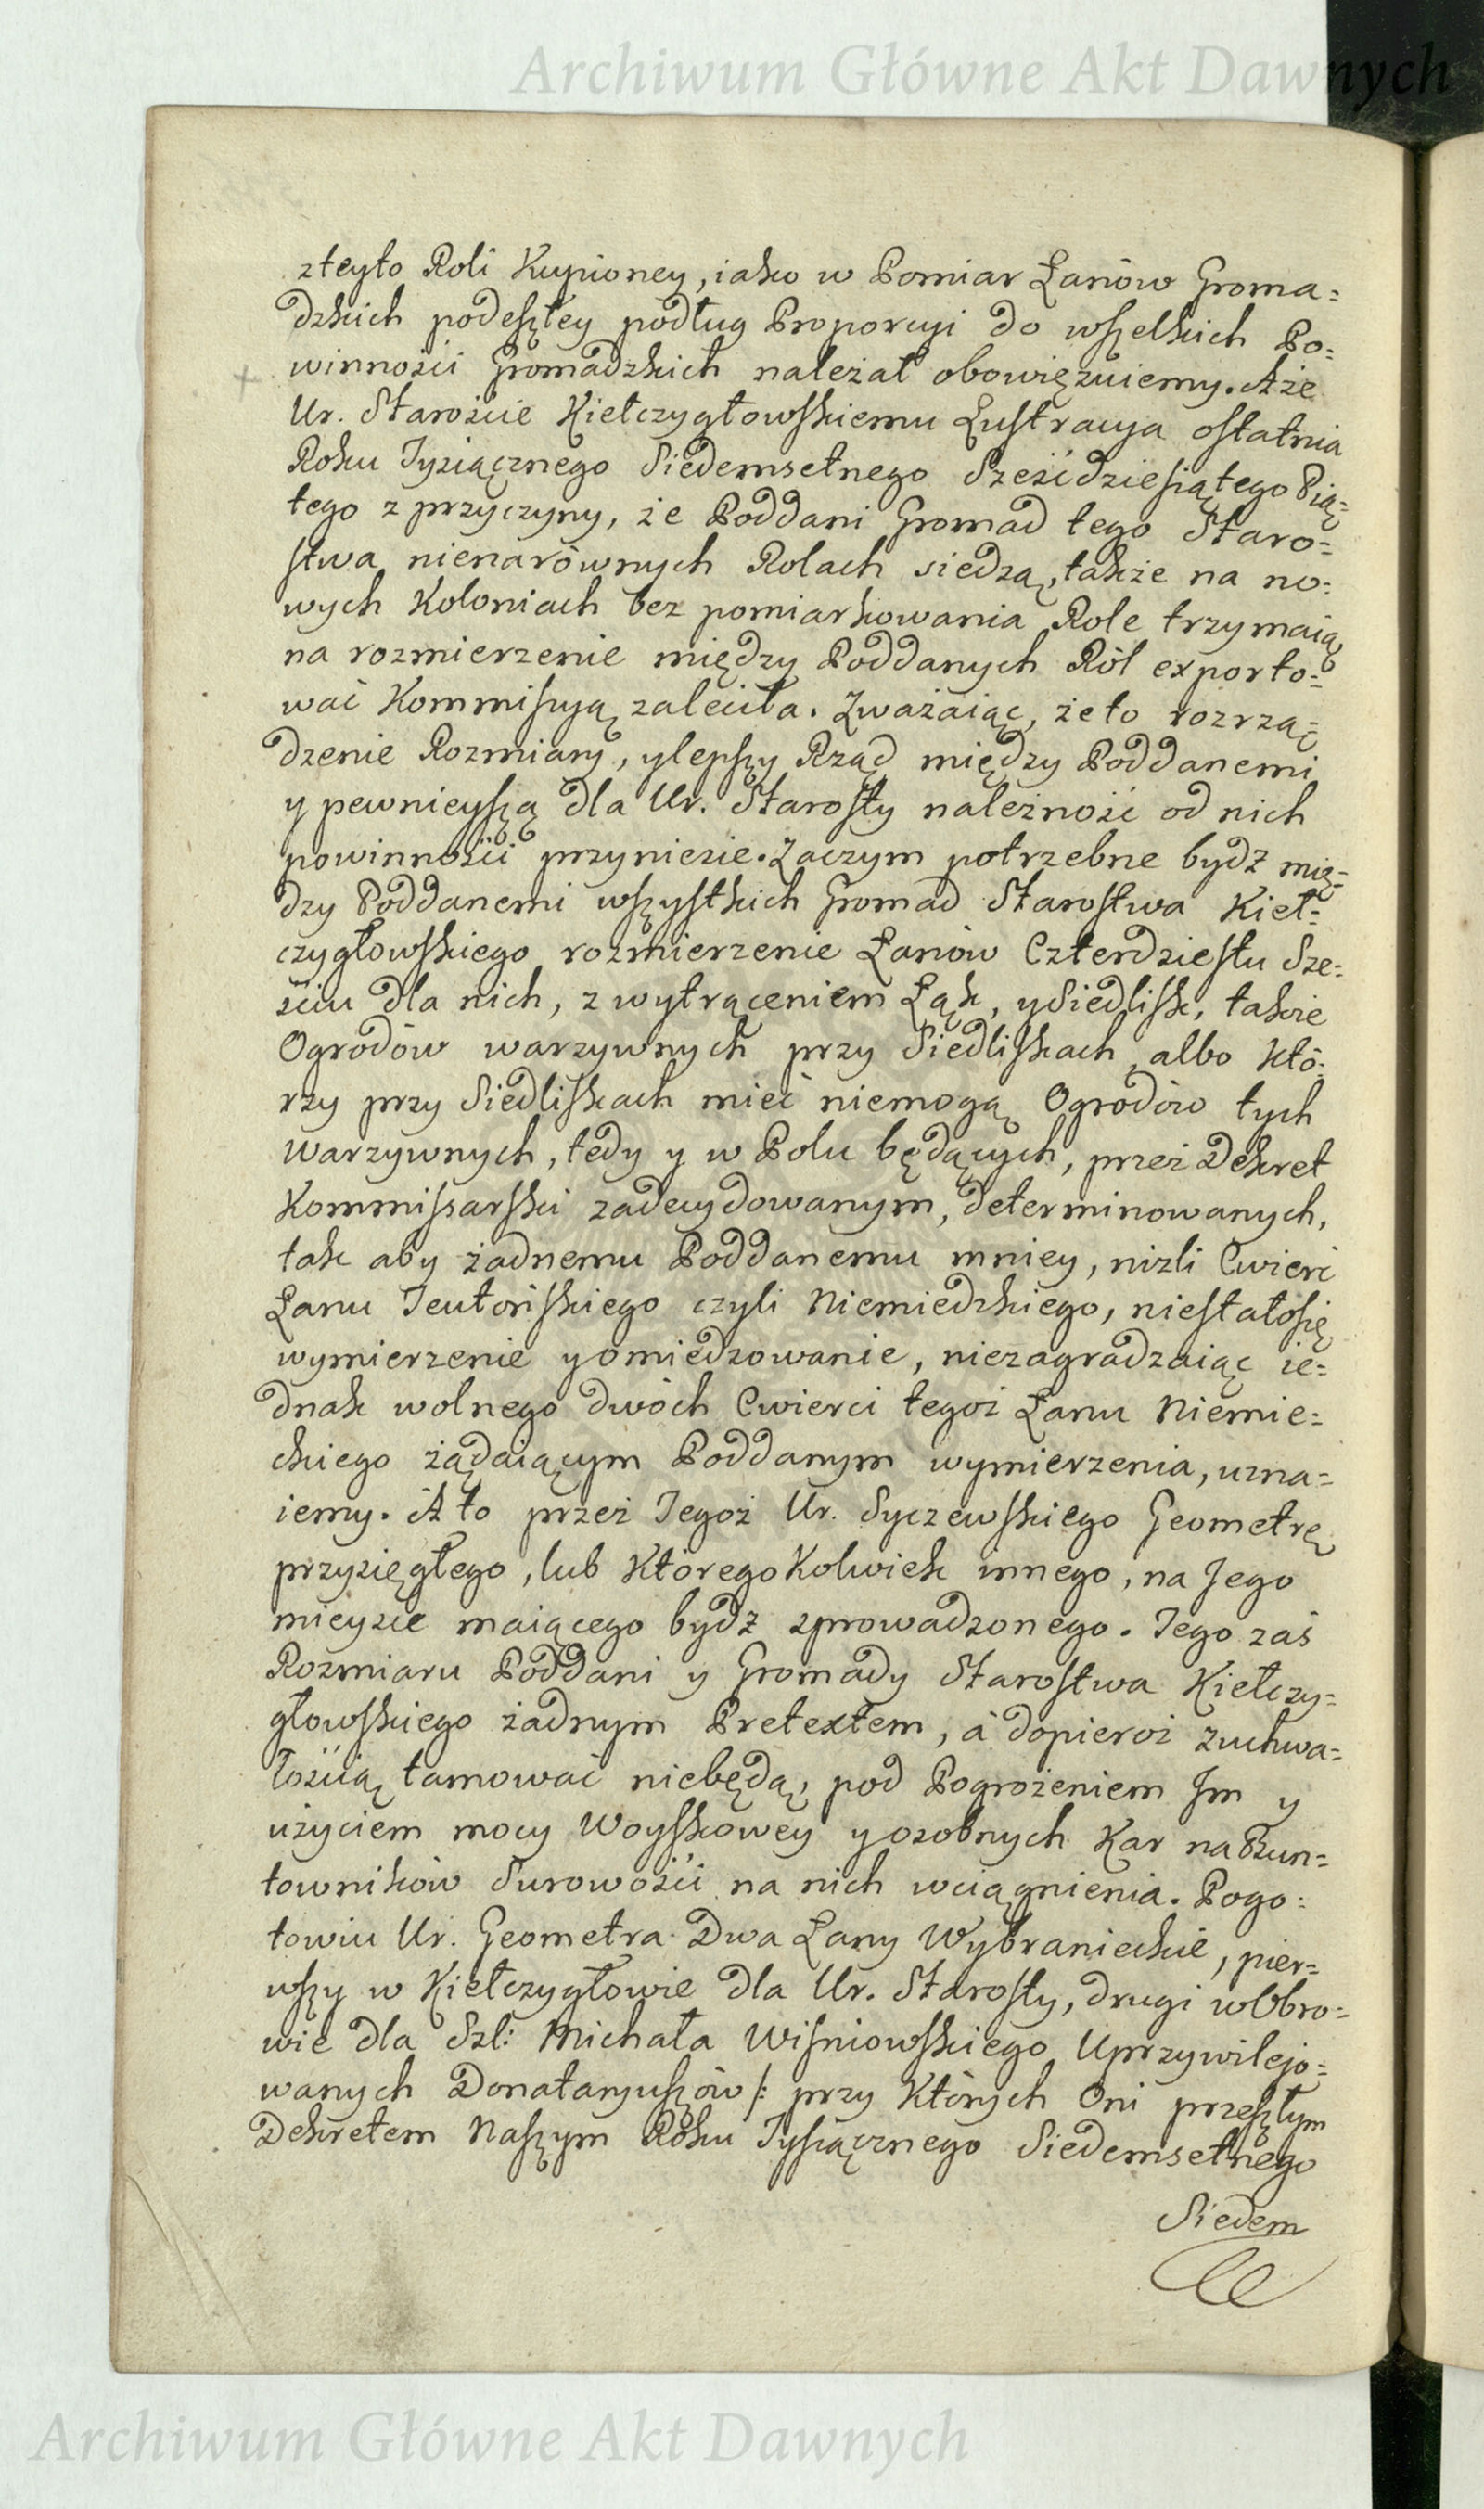 Archiwum Główne Akt Dawnych
zteyto Roli Kupioney, iako w Pomiar Łanów Groma=
dzkich podeszłey podług Proporcyi do wszelkich Po=
winności Gromadzkich należał obowięzuiemy. A że
Ur. Staroście Kiełczygłowskiemu Lustracya ostatnia
Roku Tysiącznego Siedemsetnego Sześćdziesiątego Pią=
tego z przyczyny, że Poddani Gromad tego Staro=
stwa nienarównych Rolach siedzą, także na no=
wych Koloniach bez pomiarkowania Role trzymaią
na rozmierzenie między Poddanych Ról exporto=
wać Kommissyą zaleciła. Zważaiąc, że to rozrzą=
dzenie Rozmiary, ylepszy Rząd między Poddanemi
y pewnieyszą dla Ur. Starosty należność od nich
powinności przyniesie. Zaczym potrzebne bydź mię=
dzy Poddanemi wszystkich Gromad Starostwa Kieł=
czygłowskiego rozmierzenie Łanów Czterdziestu Sze=
ściu dla nich, z wytrąceniem Łąk, ySiedlisk, także
Ogrodów warzywnych przy Siedliskach, albo któ=
rzy przy Siedliskach mieć niemogą Ogrodów tych
Warzywnych, tedy y w Polu będących, przez Dekret
Kommissarski zadecydowanym, determinowanych,
tak aby żadnemu Poddanemu mniey, niżli Cwierć
Łanu Teutońskiego czyli Niemiedzkiego, niestałosię
wymierzenie yomiedzowanie, niezagradzaiąc ie=
dnak wolnego dwóch Cwierci tegoż Łanu Niemie=
ckiego żądaiącym Poddanym wymierzenia, uzna=
iemy. A to przez Tegoż Ur. Syczewskiego Geometrę
przysięgłego, lub KtóregoKolwiek innego, na Jego
mieysce maiącego bydź zprowadzonego. Tego zaś
Rozmiaru Poddani y Gromady Starostwa Kiełczy=
głowskiego żadnym Pretextem, á dopieroż zuchwa=
łością tamować niebędą, pod Pogrożeniem Im y
użyciem mocy Woyskowey yosobnych Kar naBun=
towników Surowości na nich wciągnienia. Pogo=
towiu Ur. Geometra Dwa Łany Wybranieckie, pier=
wszy w Kiełczygłowie dla Ur. Starosty, drugi wObro=
wie dla Szl: Michała Wisniowskiego Uprzywilejo=
wanych Donataryuszów /: przy Których Oni przeszłym
Dekretem Naszym Roku Tysiącznego Siedemsetnego
Siedem
Archiwum Główne Akt Dawnych